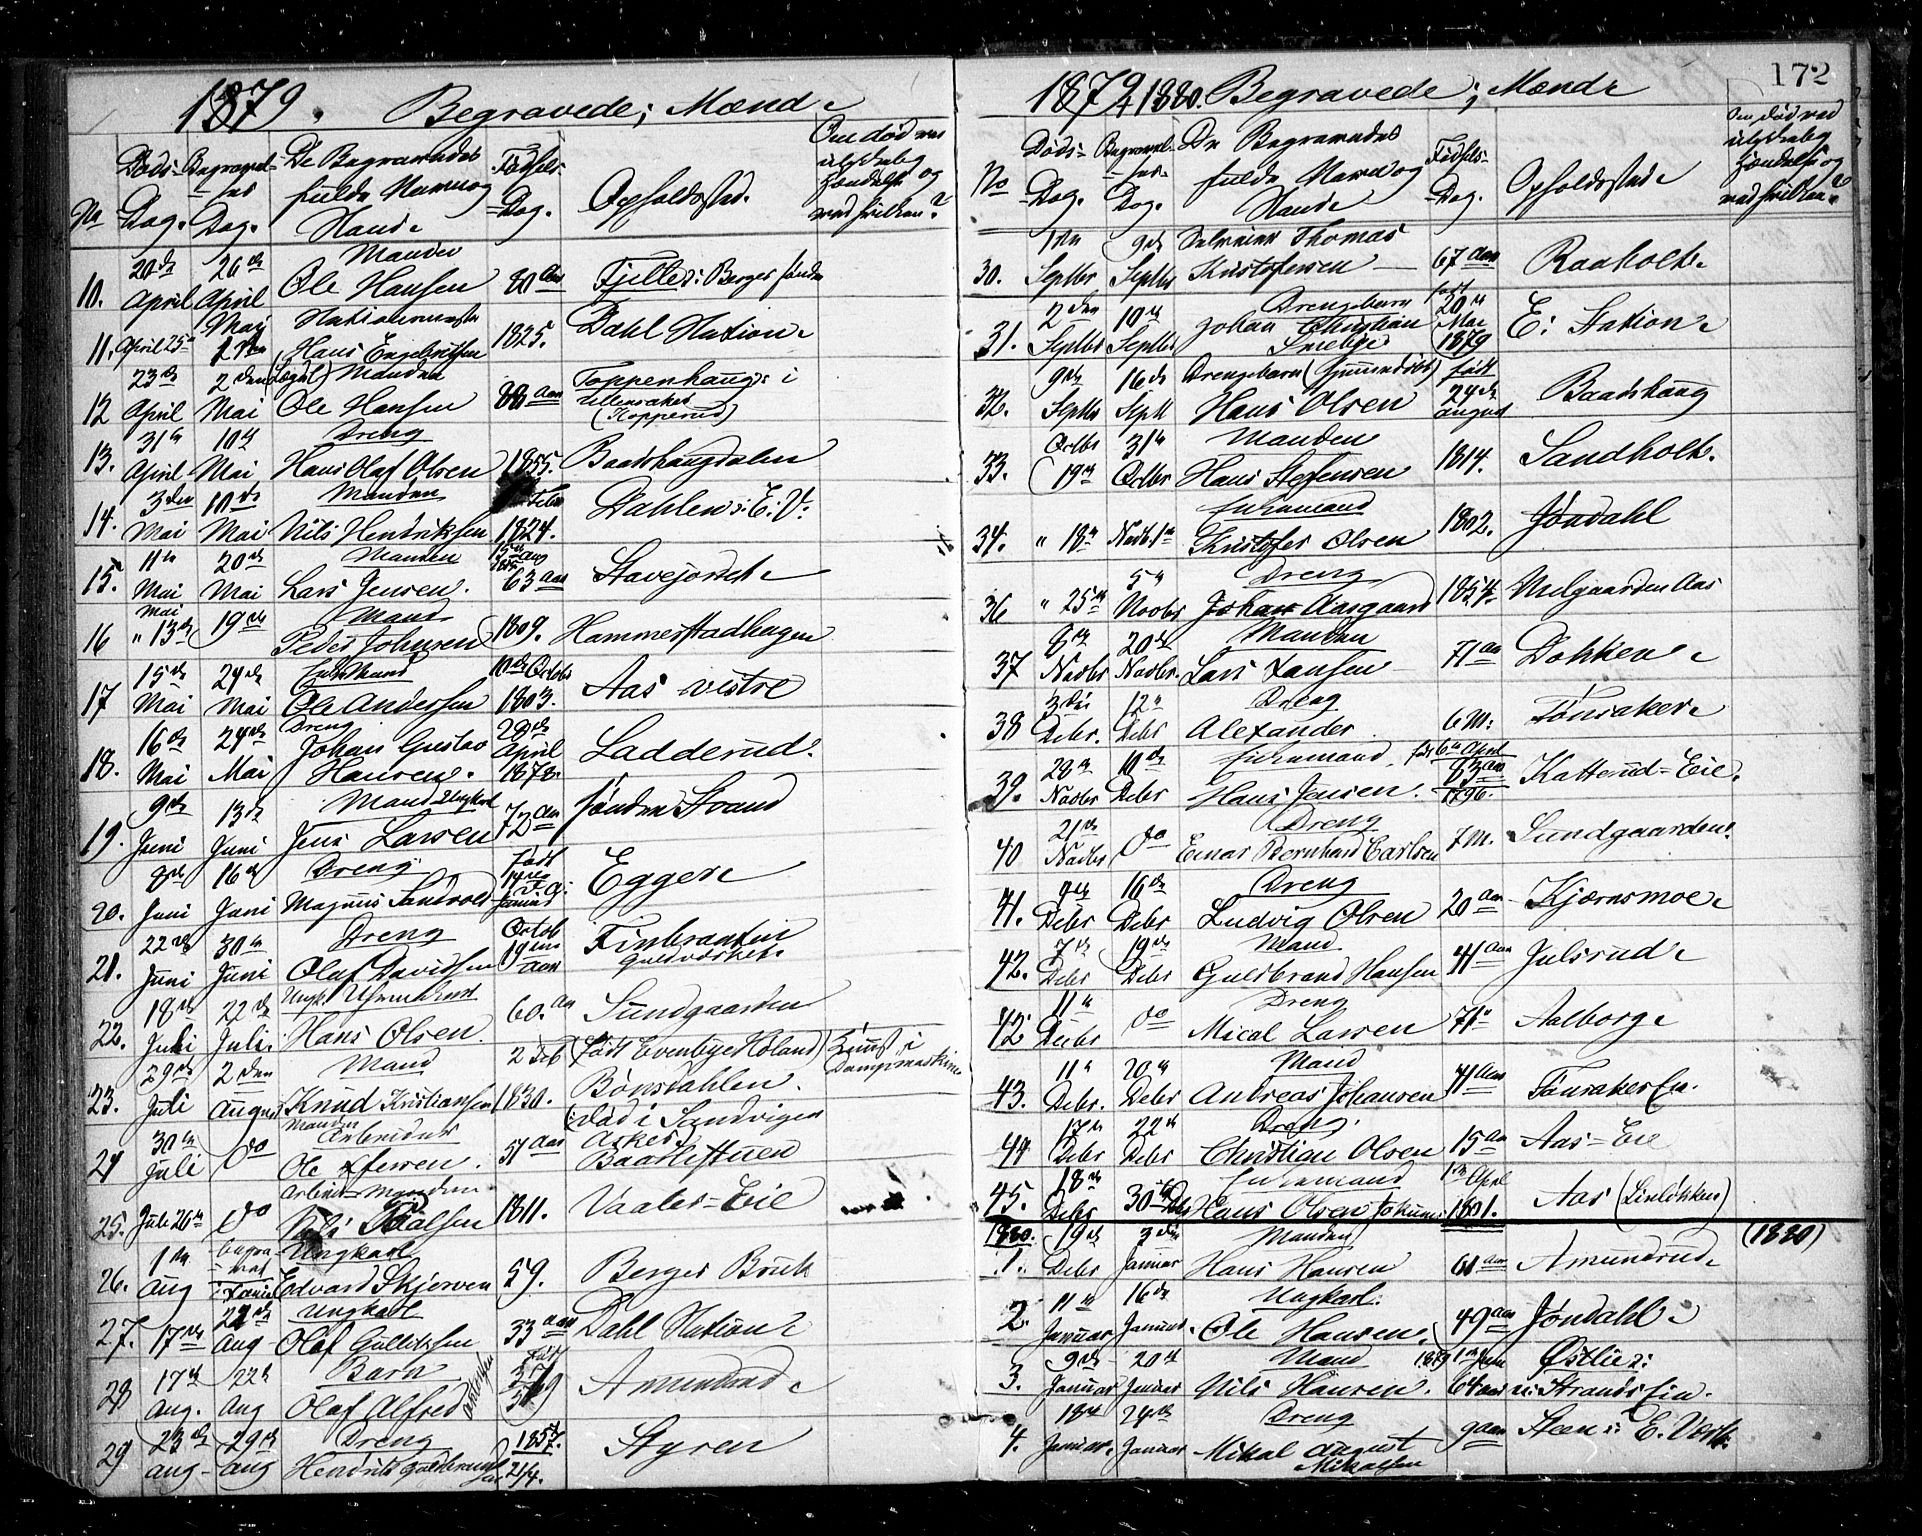 1879. Begravede; Mænd
No Døds-Dag. Begravel-ses Dag. De Begravedes fulde Navn og Stand Fødsels-Dag. Opholdssted. Om død ved ulykkelig Hændelse og ved hvilken?
10. 20de April 26de April Manden Ole Hansen 80 Aar
11. April 25 Mai Hans Engebritsen 1825. Dahl Station
12 23de April 2den Mai Manden Ole Hansen 88 Aar Toppenhaug i Ullensaker
13. April 10de Mai Dreng Hans Olaf Olsen 1855. Baadshaugdalen
14. 3den Mai 10de Mai Manden Nils Hendriksen 1824. Dahlen i E: V:
15. 11te Mai 20de Mai Manden Lars Jensen. 63 Aar
16 Mai " 13de 19de Mand Peder Johnsen 1809. Hammerstadhagen
17 15de Mai 24de Mai Enkemand Ole Anderssen 10de Octobr 1803. Aas vestre
18. 16de Mai 24de Mai Dreng Johan Gustav Hansen. April 1878. Ladderud.
19. 9de Juni 13de Juni Mand Ungkarl Jens Larsen 72 Aar søndre Strand
20. 8de Juni 16de Juni Dreng Magnus født Egger
21. 22de Juni 30te Juni Dreng Olaf Davidsen Octob
22. 18de Juli 22de Juli. Hans Olsen. 60. Aar Sundgaarden
23. 29de Juli 2den August Mand Knud Kristiansen 2 Feb 1830. (født Høland) Bønsdahlen. Knust i Dampmaskine
24 30te Juli Do Manden Arbeider Ole 51 Aar død i Sandvigen Asker.
25. Juli 26de Do Arbeider Manden Nils Paalsen 1811. Vaaler-Eie
26. 1ste Aug Ungkarl Edvard Skjerven 59. Berger Brug
27. 17de Aug Ungkarl Olaf Gulliksen 33 Aar Dahl Station
28 17de Aug. 22de Aug Barn Olaf Alfred Amundrud
29 23de Aug- 29de Aug Dreng Hendrik 1857. 21/4. Styren
1879 & 1880. Begravede; Mænd 172
No Døds-Dag. Begravel-ses-Dag. De Begravedes fulde Navn og Stand Fødsels-Dag. Opholdssted Om død ved ulykkelig Hændelse og ved hvilken?
30. 1ste Septbr 9de Septbr Thomas Kristofersen 67 Aar Raaholt
31. 2den Septbr 10de Septbr Drengebarn Johan Christian født 20de Mai 1879 E: Station
32. 9de Septbr 16de Sept Drengebarn Hans Olsen født 24de August Baadshaug
33. Octbr 19de 31te Octbr Manden Hans Steffensen 1814. Sandholt.
34. " 18de Novbr. 1ste Enkemand Kristofer Olsen 1802. Jøndahl
36 " 25de 5te Novbr Dreng Johan Aasgaard 1854. Melgaarden Aas
37 8de Novbr 20de Novbr. Manden Lars Hansen 71 Aar Dokken
38 3die Debr. 12te Debr Dreng Alexander 6 M: Tønsaker
39. 28de Novbr 10de Debr Enkemand Hans Jensen. født 6te April 83 Aar 1796. Katterud-Eie.
40 21de Novbr Do Dreng Einar Bernhard Carlsen 7 M. Sundgaarden.
41. 7de Debr 16de Debr Dreng Ludvig Olsen 20 Aar Kjærnsmoe
42. 7de Debr 19de Debr Mand Guldbrand Hansen 41 Aar Julsrud
42. 11te Debr Do Dreng Mical Larsen Aalborg
43. 11te Debr. 20de Debr Mand Andreas Johansen 71 Aar Tønsaker Eie.
44 17de Debr 22de Debr Dreng. Christian Olsen 15 Aar Aas-Eie
45. 18de Debr 30te Debr Enkemand Hans Olsen 1ste April 1801. Aas
1880. (1880)
1. 19de Debr 3die Januar Manden Hans Hansen Amundrud
2. 11te Januar 16de Januar. Ungkarl. Ole Hansen 49 Aar Jøndahl
3. 9de Januar 20de Januar Mand Nils Hansen. 64 Aar Østlie i: Strands Eie.
4. 18de Januar. 24de Januar Dreng Mikal August Mikalsen 9 Aar Steen i E. Værk.